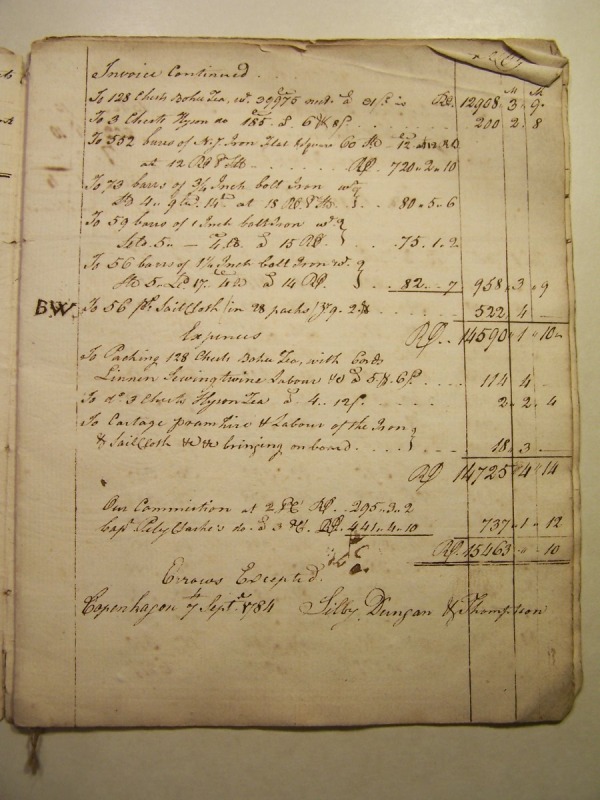 Invoice Continued.
To 128 Chests Bohea Tea, wt. 39975 a 31 ſs is RD. 12908 " 3 " 9
To 3 Chests Hyson do 185 a 6 8 ſs 200 2 " 8
To 552 barrs of No 7 Iron Flat & Square 60 St 12
at 12 RD RD. 720 " 2 " 10
To 73 barrs of 3/4 Inch bolt Iron wg
St 4 " 9 14 at 18 RD 80 " 5 " 6
To 59 barrs of 1 Inch bolt Iron wg
5 " — a 15 RD. 75 . 1 . 2
To 56 barrs of 1 1/4 Inch bolt Iron wg
St 5 " 17 a 14 RD. 82 " 7 958 " 3 " 9
BW. To 56 ps. Sail Cloth / in 28 packs / 9 . 2 522 " 4 —
RD. 14590 " 1 " 10
Expences
To Packing 128 Chests Bohea Tea, with Cords
Linnen Sewing twine Labour &c a 5 . 6 ſs 114 4 —
To do. 3 Chests Hyson Tea a 4 . 12 ſs. 2 " 2 " 4
To Cartage pram hire & Labour of the Iron
& Sail Cloth &c &c bringing on board 18 " 3 —
RD 14725 " 4 " 14
Our Commission at 2 PCt RD. 295 . 3 . 2
Capt. Clarke's do. a 3 PCt. RD. 441 " 4 " 10 737 " 1 " 12
RD. 15463 " " 10
Errours Excepted.
Copenhagen 7 Sept. 1784 Selby, Duncan & Thompson